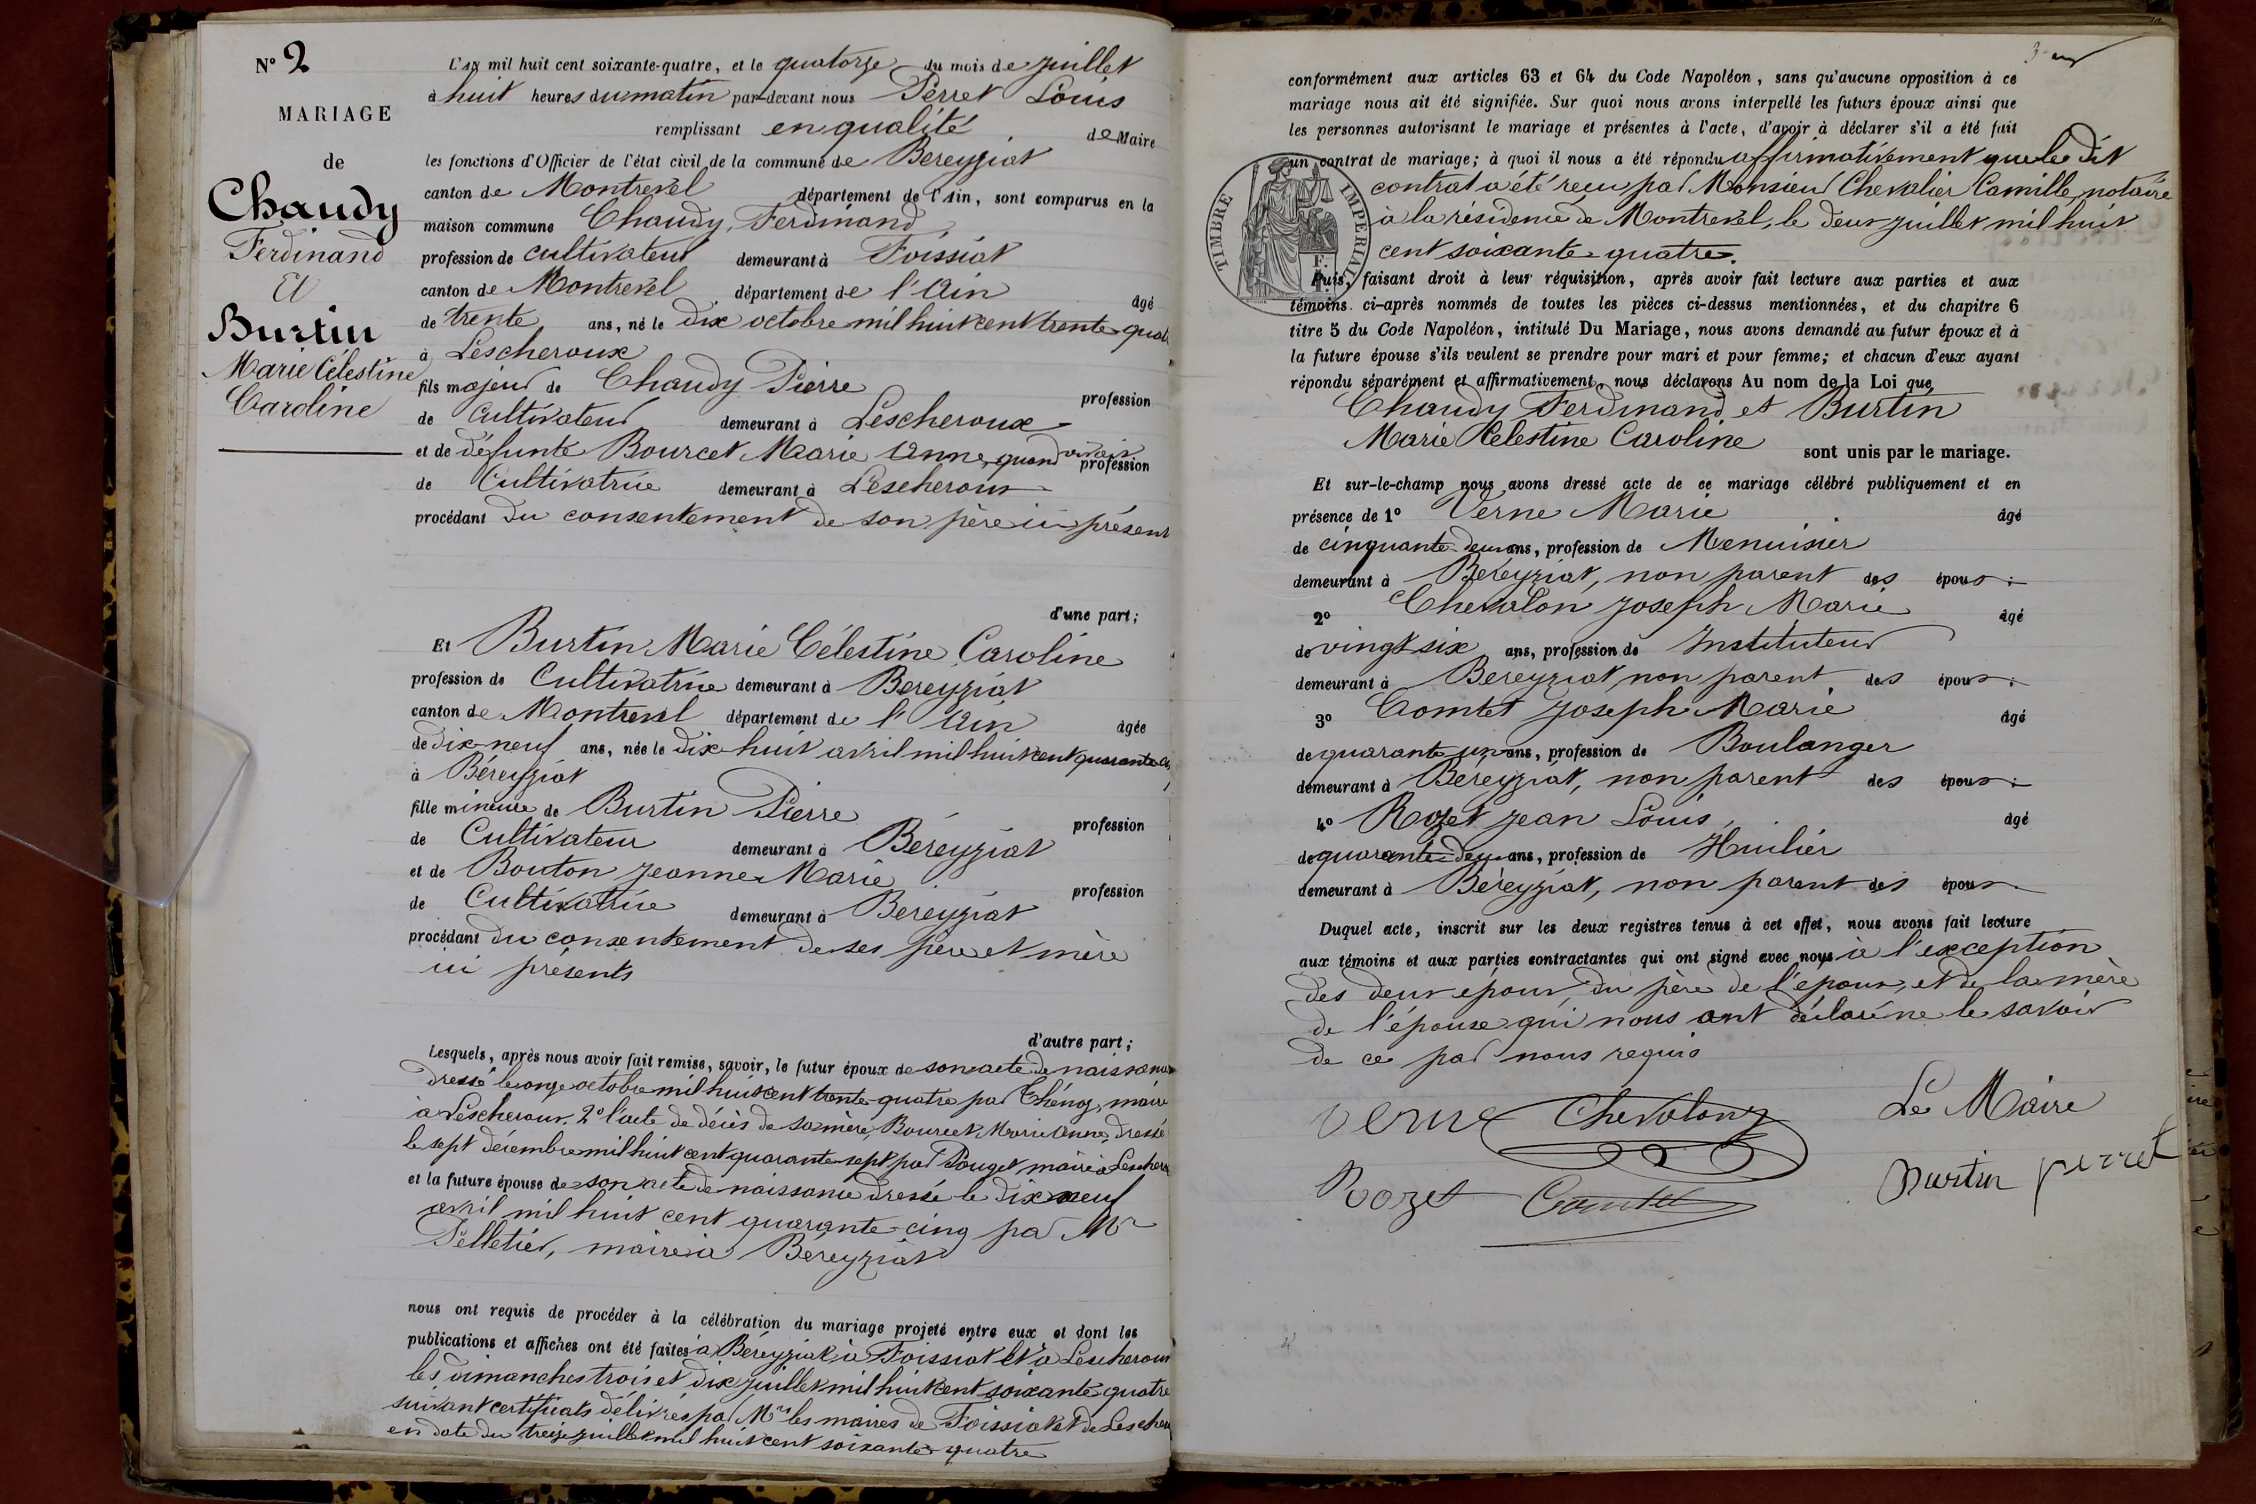 N° 2
MARIAGE
de
Chaudy
Ferdinand
Et
Burtin
Marie Célestine
Caroline
L'an mil huit cent soixante-quatre, et le quatorze du mois de juillet
à huit heures du matin par-devant nous Perret Louis
remplissant en qualité de Maire
les fonctions d'Officier de l'état civil de la commune de Bereyziat
canton de Montrevel département de l'Ain, sont comparus en la
maison commune Chaudy, Ferdinand
profession de cultivateur demeurant à Foissiat
canton de Montrevel département de l'Ain âgé
de trente ans, né le dix octobre mil huit cent trente-quat
à Lescheroux
fils majeur de Chaudy Pierre profession
de Cultivateur demeurant à Lescheroux
et de défunte Bourcet Marie Anne, quand vivait profession
de Cultivatrice demeurant à Lescheroux
procédant du consentement de son père ici présent
d'une part;
Et Burtin Marie Célestine Caroline
profession de Cultivatrice demeurant à Bereyziat
canton de Montrevel département de l'Ain âgée
de dix-neuf ans, née le dix-huit avril mil huit cent quarante
à Béreyziat
fille mineure de Burtin Pierre profession
de Cultivateur demeurant à Béreyziat
et de Bouton Jeanne-Marie profession
de Cultivatrice demeurant à Bereyziat
procédant du consentement de ses père et mère
ici présents
d'autre part;
Lesquels, après nous avoir fait remise, savoir, le futur époux de son acte de naissance
dressé le onze octobre mil huit cent trente-quatre par Chénoz, maire
à Lescheroux. 2° l'acte de décès de sa mère, Bourcet Marie Anne, dressé
le sept décembre mil huit cent quarante-sept par Pouget, maire à Leschero
et la future épouse de son acte de naissance dressé le dix neuf
avril mil huit cent quarante-cinq par Mr
Pelletier, maire à Béreyziat
nous ont requis de procéder à la célébration du mariage projeté entre eux et dont les
publications et affiches ont été faites à Béreyziat, à Foissiat et à Lescheroux
les dimanches trois et dix juillet mil huit cent soixante-quatre
suivant certificats délivrés par Mrs les maires de Foissiat et de Lescher
en date du treize juillet mil huit cent soixante-quatre
conformément aux articles 63 et 64 du Code Napoléon, sans qu'aucune opposition à ce
mariage nous ait été signifiée. Sur quoi nous avons interpellé les futurs époux ainsi que
les personnes autorisant le mariage et présentes à l'acte, d'avoir à déclarer s'il a été fait
un contrat de mariage; à quoi il nous a été répondu affirmativement que le dit
contrat a été reçu par Monsieur Chevalier Camille, notaire
à la résidence de Montrevel, le deux juillet mil huit
cent soixante-quatre.
TIMBRE IMPERIAL
Puis, faisant droit à leur réquisition, après avoir fait lecture aux parties et aux
témoins ci-après nommés de toutes les pièces ci-dessus mentionnées, et du chapitre 6
titre 5 du Code Napoléon, intitulé Du Mariage, nous avons demandé au futur époux et à
la future épouse s'ils veulent se prendre pour mari et pour femme; et chacun d'eux ayant
répondu séparément et affirmativement, nous déclarons Au nom de la Loi que
Chaudy Ferdinand et Burtin
Marie Célestine Caroline sont unis par le mariage.
Et sur-le-champ nous avons dressé acte de ce mariage célébré publiquement et en
présence de 1° Verne Marie âgé
de cinquante-deux ans, profession de Menuisier
demeurant à Béreyziat, non parent des époux;
2° Chevalon Joseph Marie âgé
de vingt six ans, profession de Instituteur
demeurant à Bereyziat, non parent des époux;
3° Comtet Joseph Marie âgé
de quarante-un ans, profession de Boulanger
demeurant à Béreyziat, non parent des époux;
4° Rozet Jean Louis, âgé
de quarante-deux ans, profession de Huilier
demeurant à Béreyziat, non parent des époux
Duquel acte, inscrit sur les deux registres tenus à cet effet, nous avons fait lecture
aux témoins et aux parties contractantes qui ont signé avec nous à l'exception
des deux époux, du père de l'époux, et de la mère
de l'épouse qui nous ont déclaré ne le savoir
de ce par nous requis
Verne Chevalon Le Maire
Rozet Comtet Burtin perret